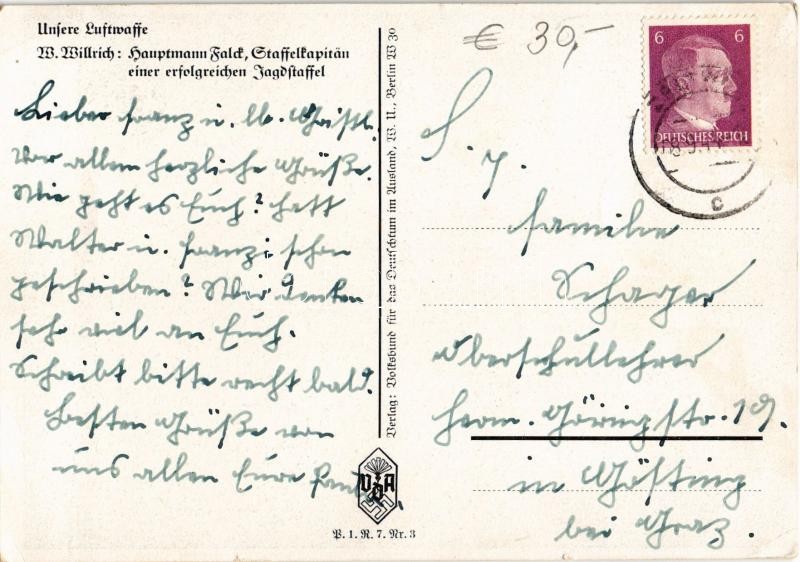 Unsere Luftwaffe
W. Willrich: Hauptmann Falck, Staffelkapitän
einer erfolgreichen Jagdstaffel
Lieber Franz u. lb. Christl.
Vor allem herzliche Grüße.
Wie geht es Euch? hatt
Walter u. Franzi schon
geschrieben? Wir denken
sehr viel an Euch.
Schreibt bitte recht bald.
Besten Grüße von
uns allen Eure
VDA
P. 1. R. 7. Nr. 3
Verlag: Volksbund für das Deutschtum im Ausland, W. U., Berlin W 30
€ 30,-
6 6
DEUTSCHES REICH
c
Familie
Schager
Oberschullehrer
Herm. Göringstr. 19.
in Gösting
bei Graz.